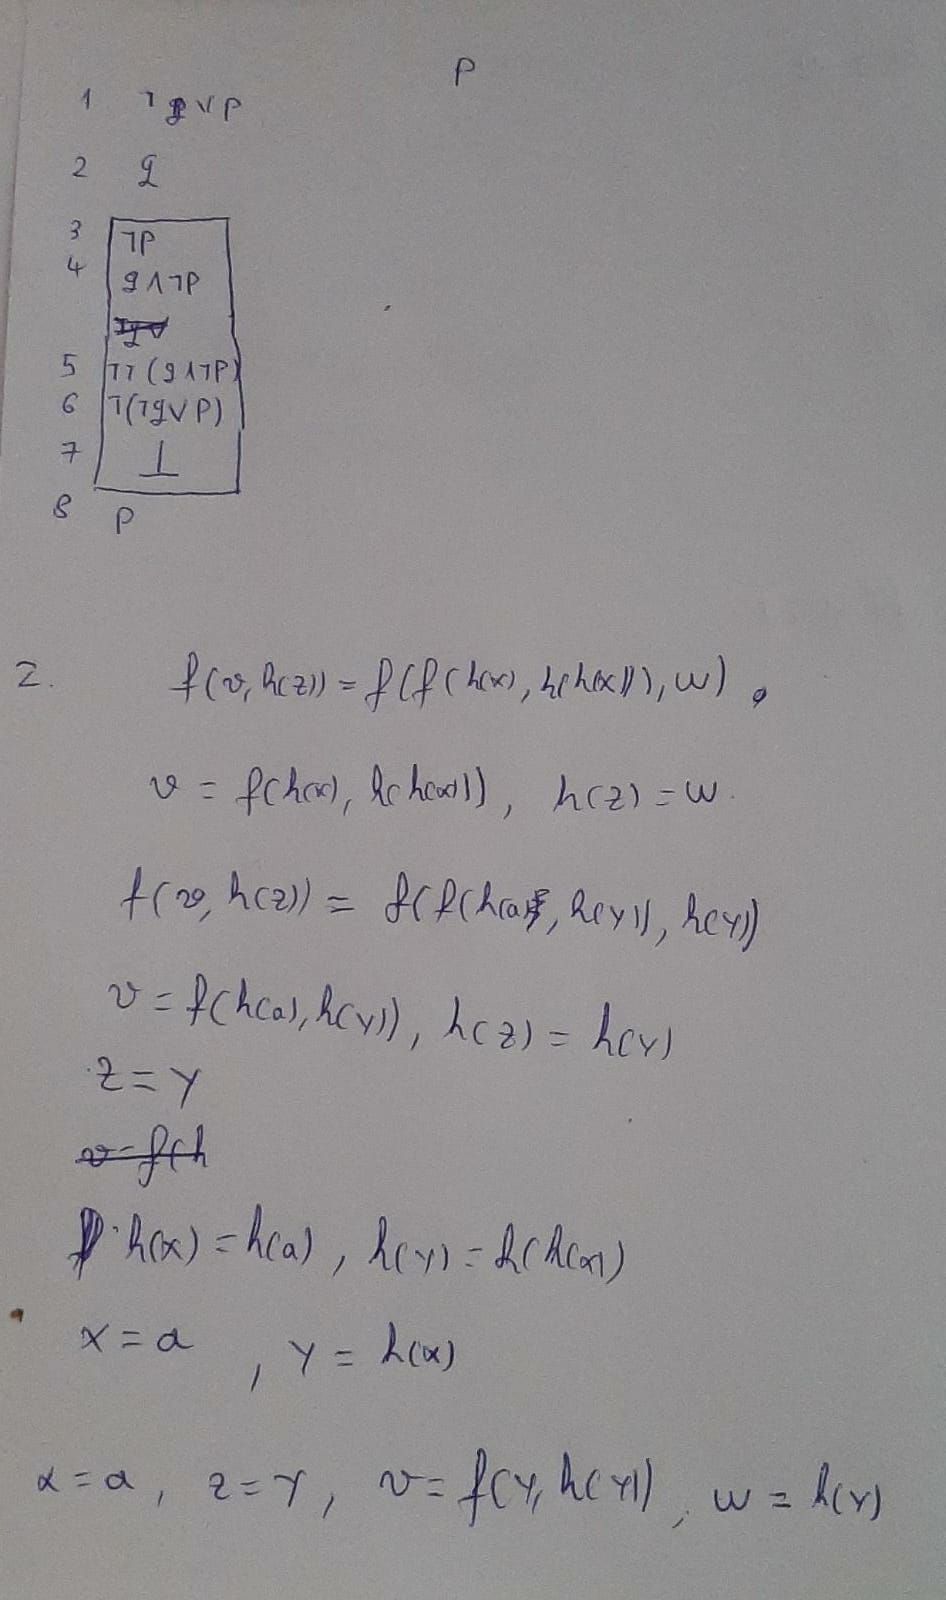 P
1 ¬q∨p
2 q
3 ¬P
4 q∧¬P
5 ¬¬(q∧¬P)
6 ¬(¬q∨P)
7 ⊥
8 P
2. f(v, h(z)) = f(f(h(x), h(h(x))), w)
v = f(h(x), h(h(x))), h(z) = w.
f(v, h(z)) = f(f(h(a), h(y)), h(y))
v = f(h(a), h(y)), h(z) = h(y)
z = y
h(x) = h(a), h(y) = h(h(x))
x = a, y = h(x)
x = a, z = y, v = f(y, h(y)), w = h(y)